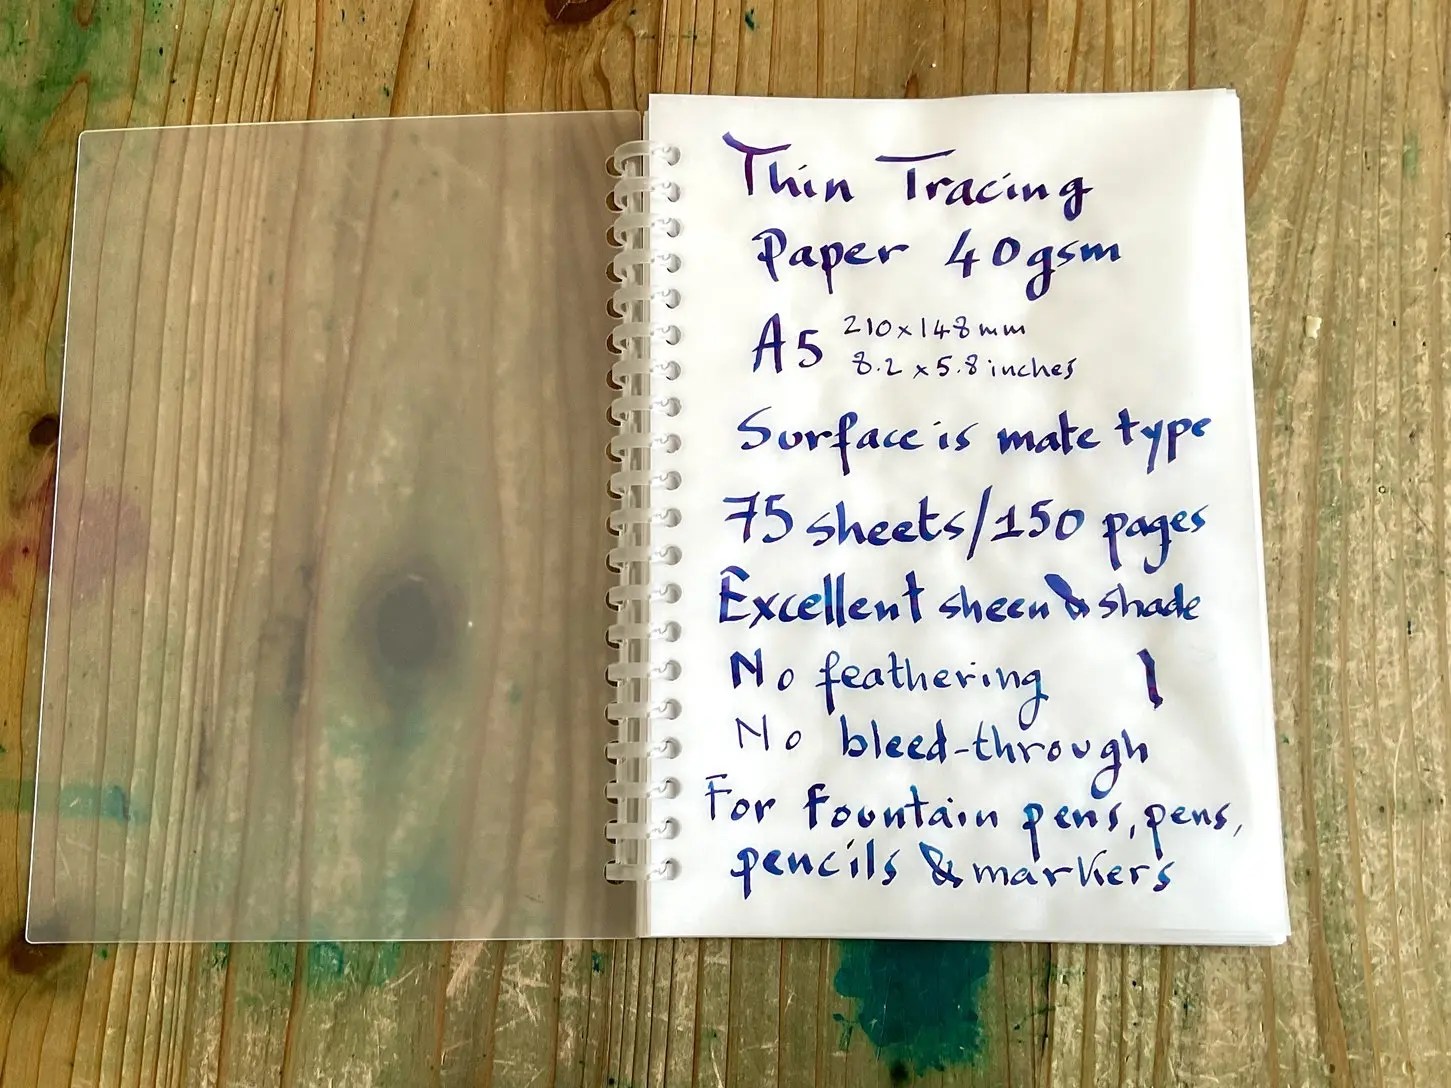 Thin Tracing
Paper 40gsm
A5 210x148mm
8.2 x 5.8 inches
Surface is mate type
75 sheets/150 pages
Excellent sheen & shade
No feathering
No bleed-through
For fountain pens, pens,
pencils & markers